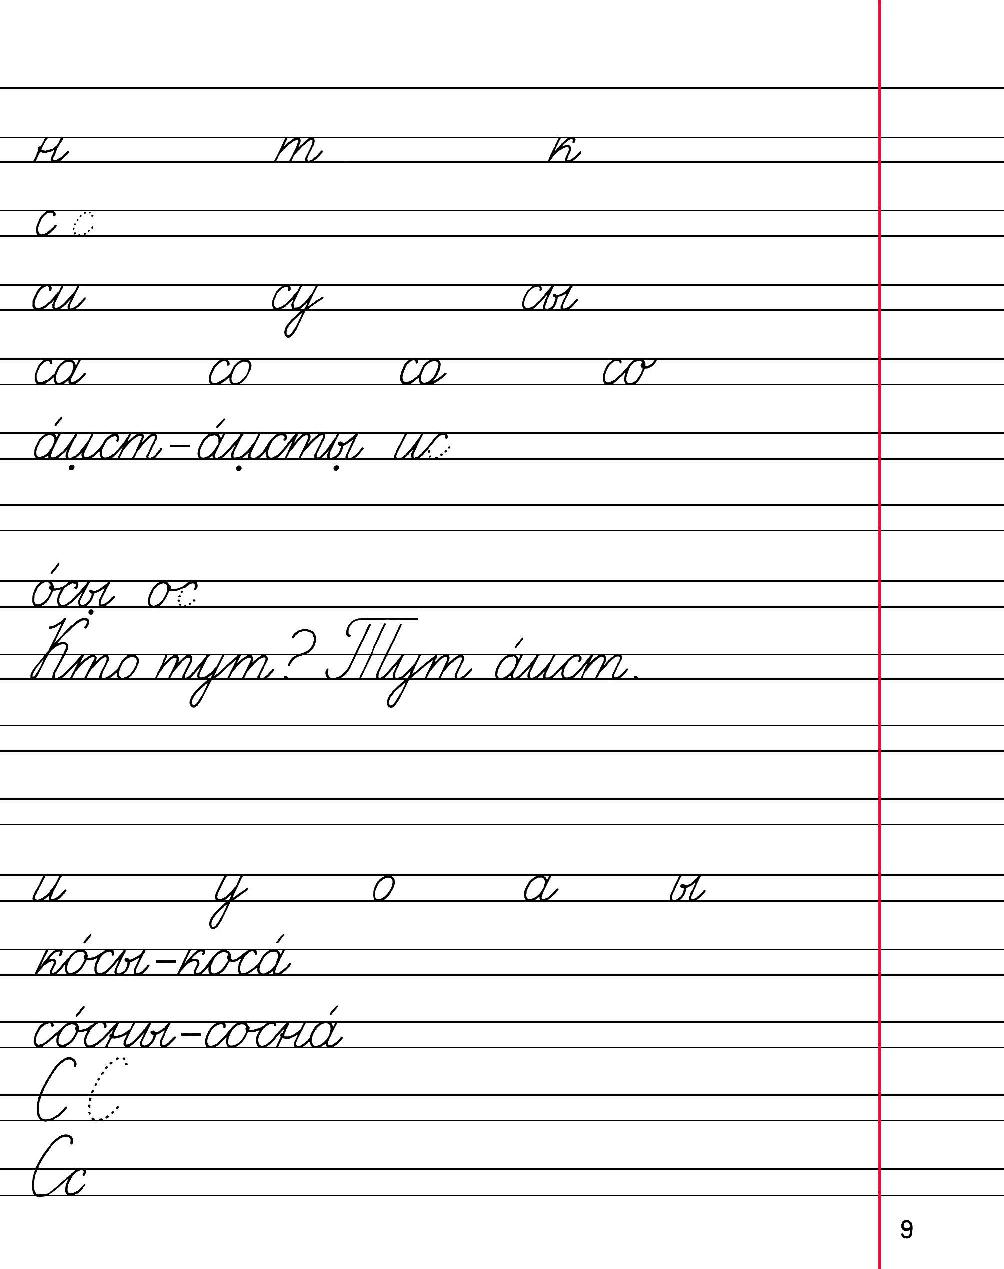 н т к
с с
си су сы
са со са со
а́ист-а́исты ис
о́сы ос
Кто тут? Тут а́ист.
и у о а ы
ко́сы-коса́
со́сны-сосна́
С С
Сс
9